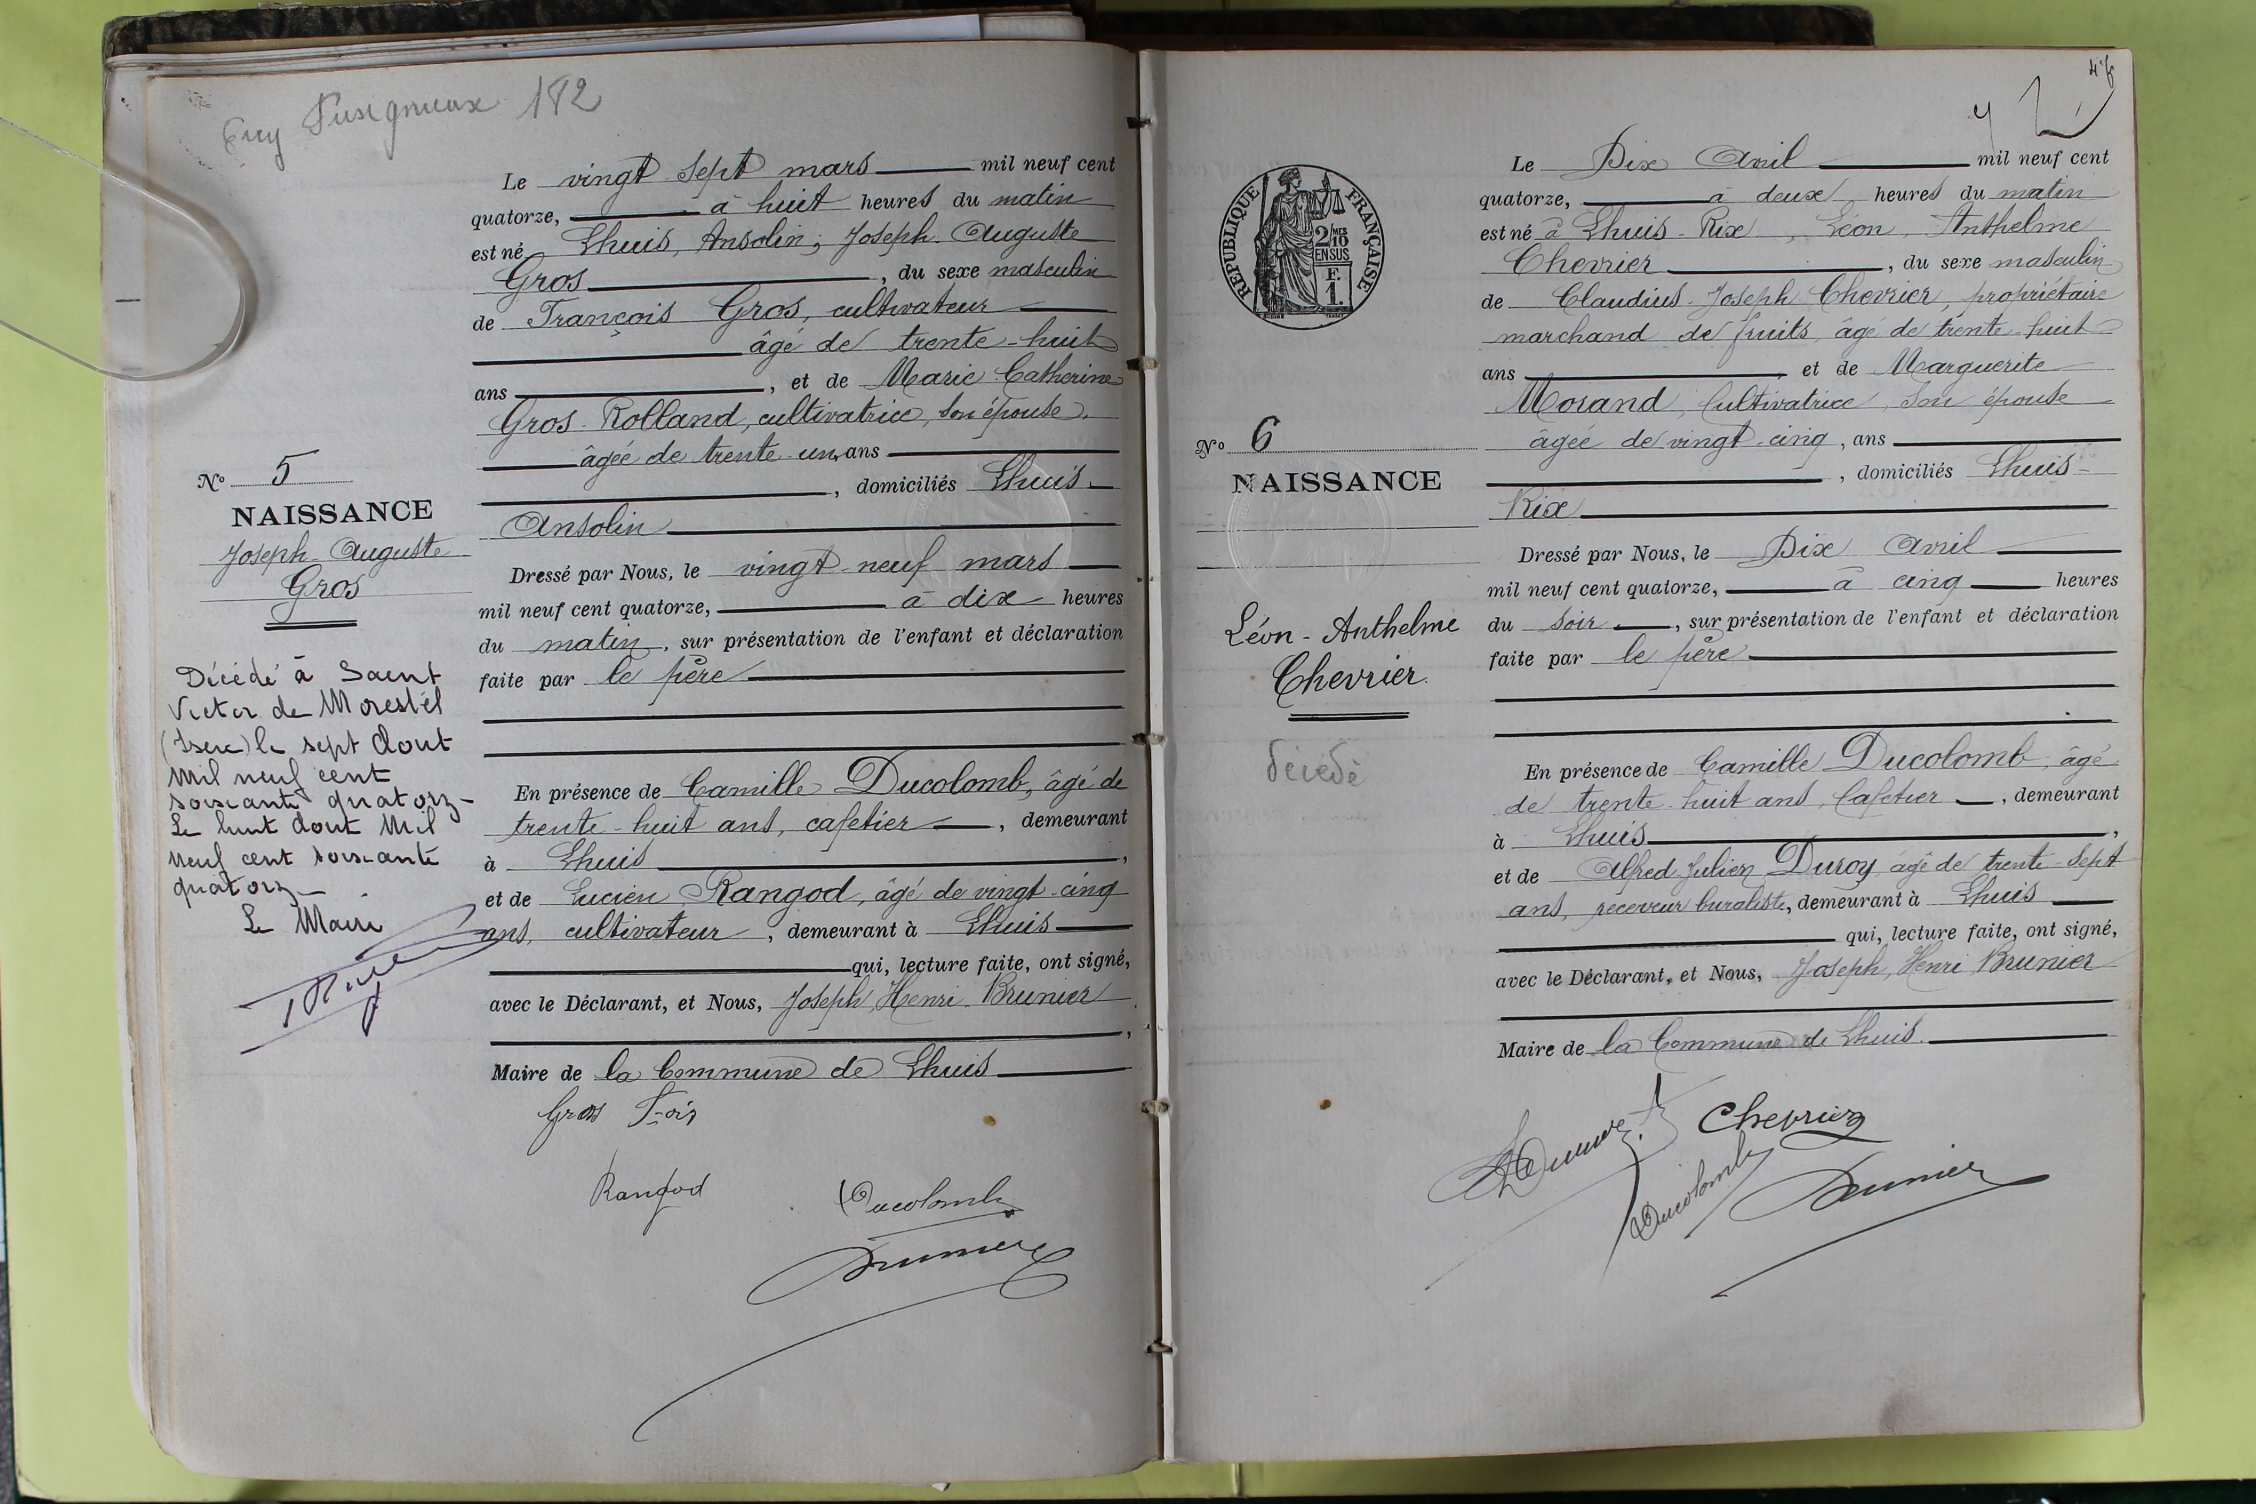 182
Le vingt sept mars mil neuf cent
quatorze, à huit heures du matin
est né Lhuis, Ansolin, Joseph Auguste
Gros, du sexe masculin
de François Gros, cultivateur
âgé de trente-huit
ans, et de Marie Catherine
Gros-Rolland, cultivatrice, son épouse,
âgée de trente-un, ans
, domiciliés Lhuis-
Ansolin
Dressé par Nous, le vingt-neuf mars
mil neuf cent quatorze, à dix heures
du matin, sur présentation de l'enfant et déclaration
faite par le père
En présence de Camille Ducolomb, âgé de
trente-huit ans, cafetier, demeurant
à Lhuis,
et de Lucien Rangod, âgé de vingt-cinq
ans, cultivateur, demeurant à Lhuis
qui, lecture faite, ont signé,
avec le Déclarant, et Nous, Joseph, Henri Brunier
,
Maire de la Commune de Lhuis
Gros Fois
Rangod Ducolomb
Brunier
No 5
NAISSANCE
Joseph-Auguste
Gros
Décédé à Saint
Victor de Morestel
(Isère) le sept Aout
mil neuf cent
soixante quatorze
Le huit Aout Mil
neuf cent soixante
quatorze
Le Maire
RÉPUBLIQUE FRANÇAISE
2/10MES
EN SUS
F.
1.
No 6
NAISSANCE
Léon-Anthelme
Chevrier.
décédé
Le Dix Avril mil neuf cent
quatorze, à deux heures du matin
est né à Lhuis-Rix, Léon, Anthelme
Chevrier, du sexe masculin
de Claudius-Joseph Chevrier, propriétaire
marchand de fruits, âgé de trente-huit
ans et de Marguerite
Morand, Cultivatrice, son épouse
âgée de vingt-cinq, ans
, domiciliés Lhuis-
Rix
Dressé par Nous, le Dix Avril
mil neuf cent quatorze, à cinq heures
du soir, sur présentation de l'enfant et déclaration
faite par le père
En présence de Camille Ducolomb, âgé
de trente-huit ans, Cafetier, demeurant
à Lhuis,
et de Alfred Julien Duroy, âgé de trente-sept
ans, receveur buraliste, demeurant à Lhuis
qui, lecture faite, ont signé,
avec le Déclarant, et Nous, Joseph, Henri Brunier
Maire de la Commune de Lhuis.
Chevrier
Ducolomb
Brunier